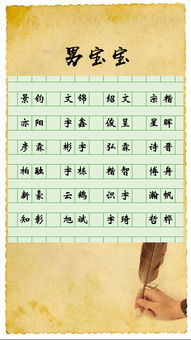 男宝宝
景钧 文锦 绍文 宗楷
亦阳 宇鑫 俊呈 星晖
彦森 彬宇 弘森 诗晋
柏融 宇栋 楷智 博舟
新豪 云鹤 识宇 瀚帆
知彰 旭斌 宇琦 哲桦